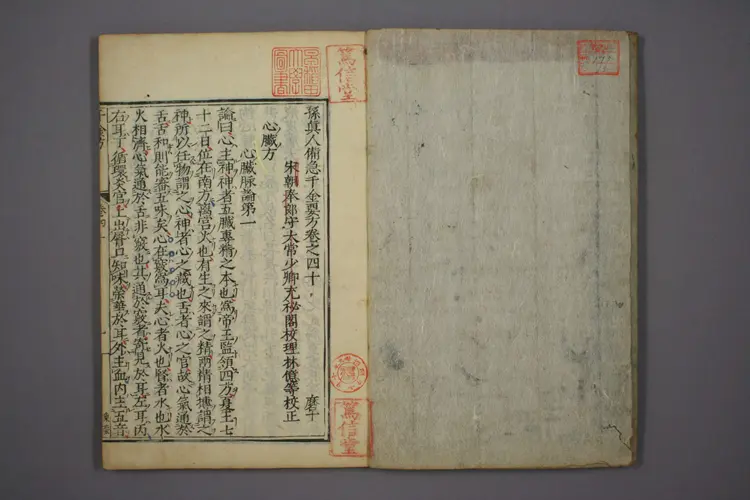 孫真人備急千金要方卷之四十 磨二
宋朝奉郎守太常少卿充祕閣校理林億等校正
心臟方
心臟脉論第一
論曰心主神神者五臟專精之本也爲帝王監領四方夏王七
十二日位在南方离宮火也有生之來謂之精兩精相摶謂之
神所以任物謂之心神者心之藏也舌者心之官故心氣通於
舌舌和則能審五味矣心在竅爲耳夫心者火也腎者水也水
火相濟心氣通於舌非竅也其通於竅者寄見於耳左耳丙
右耳丁循環炎宮上出脣口知味榮華於耳外主血內主五音
千金方
篤信堂
篤信堂